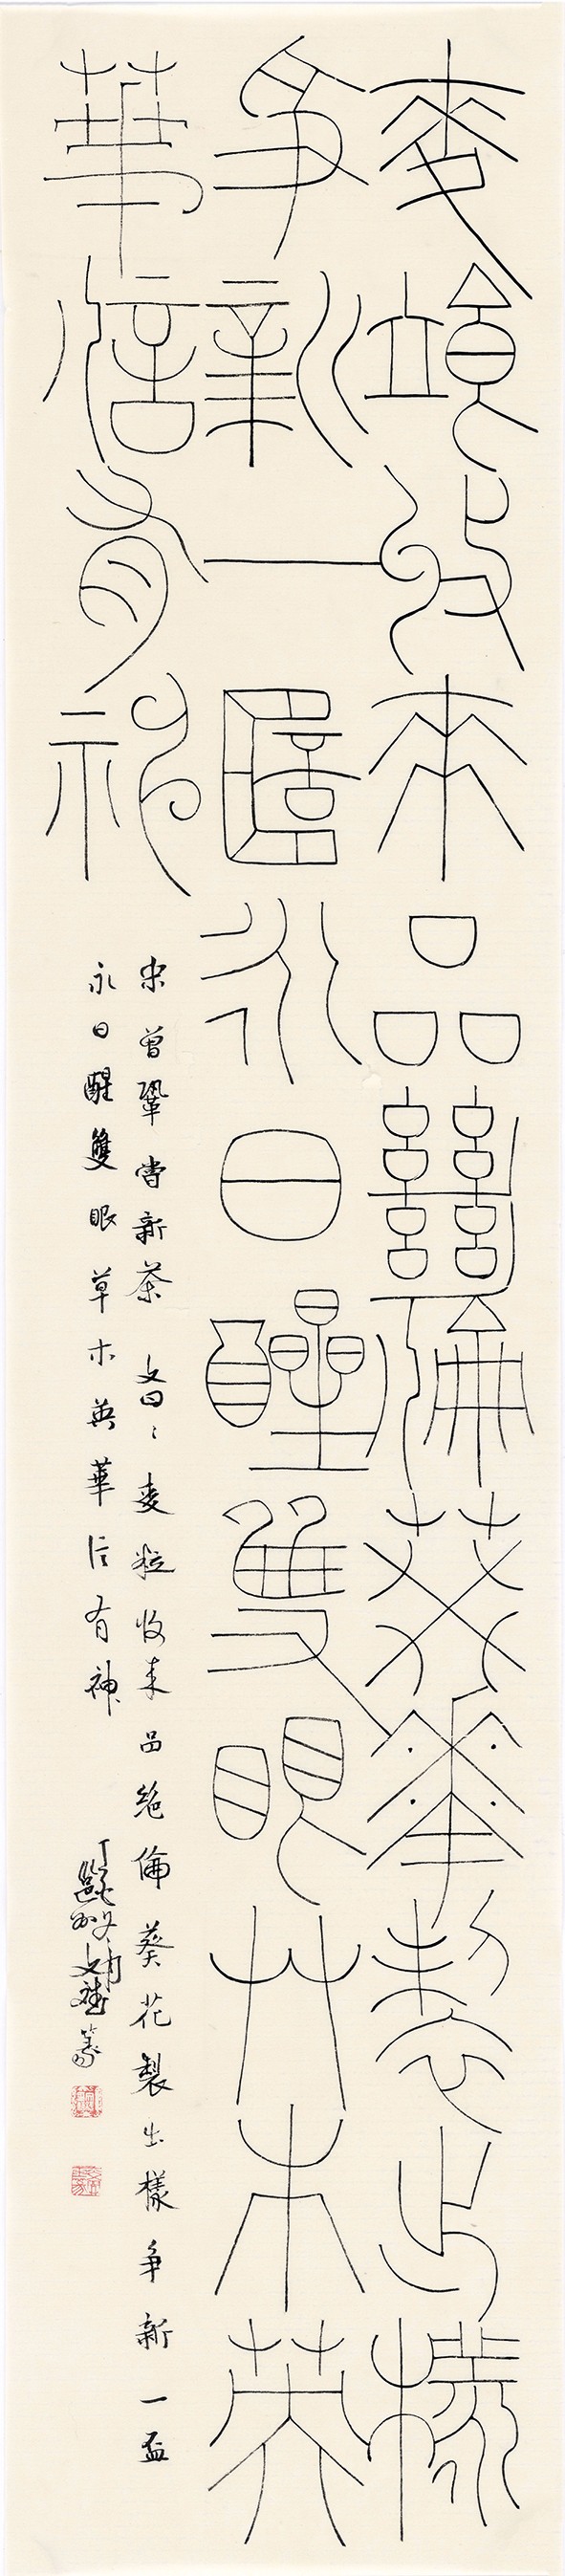 麥粒收來品絕倫葵華製出樣
爭新一杯永日醒雙眼艸木英
華信有神
宋曾鞏嘗新茶 文曰麥粒收來品絕倫葵花製出樣爭新一盃
永日醒雙眼草木英華信有神 篆